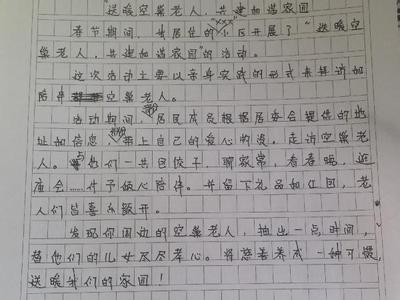 "送暖空巢老人，共建和谐家园
春节期间，我居住的"×××"小区开展了"送暖空
巢老人，共建和谐家园"的活动。
这次活动主要以亲身实践的形式来拜访和
陪伴空巢老人。
活动期间，居民成员根据居委会提供的地
址和信息，带上自己的爱心物资，走访空巢老
人。他们一共包饺子，聊家常，看春晚，逛
庙会……给予倾心陪伴。并留下礼品和红包，老
人们皆喜乐颜开。
发现你周边的空巢老人，抽出一点时间，
替他们的儿女尽尽孝心。将慈善养成一种习惯，
送暖我们的家园！